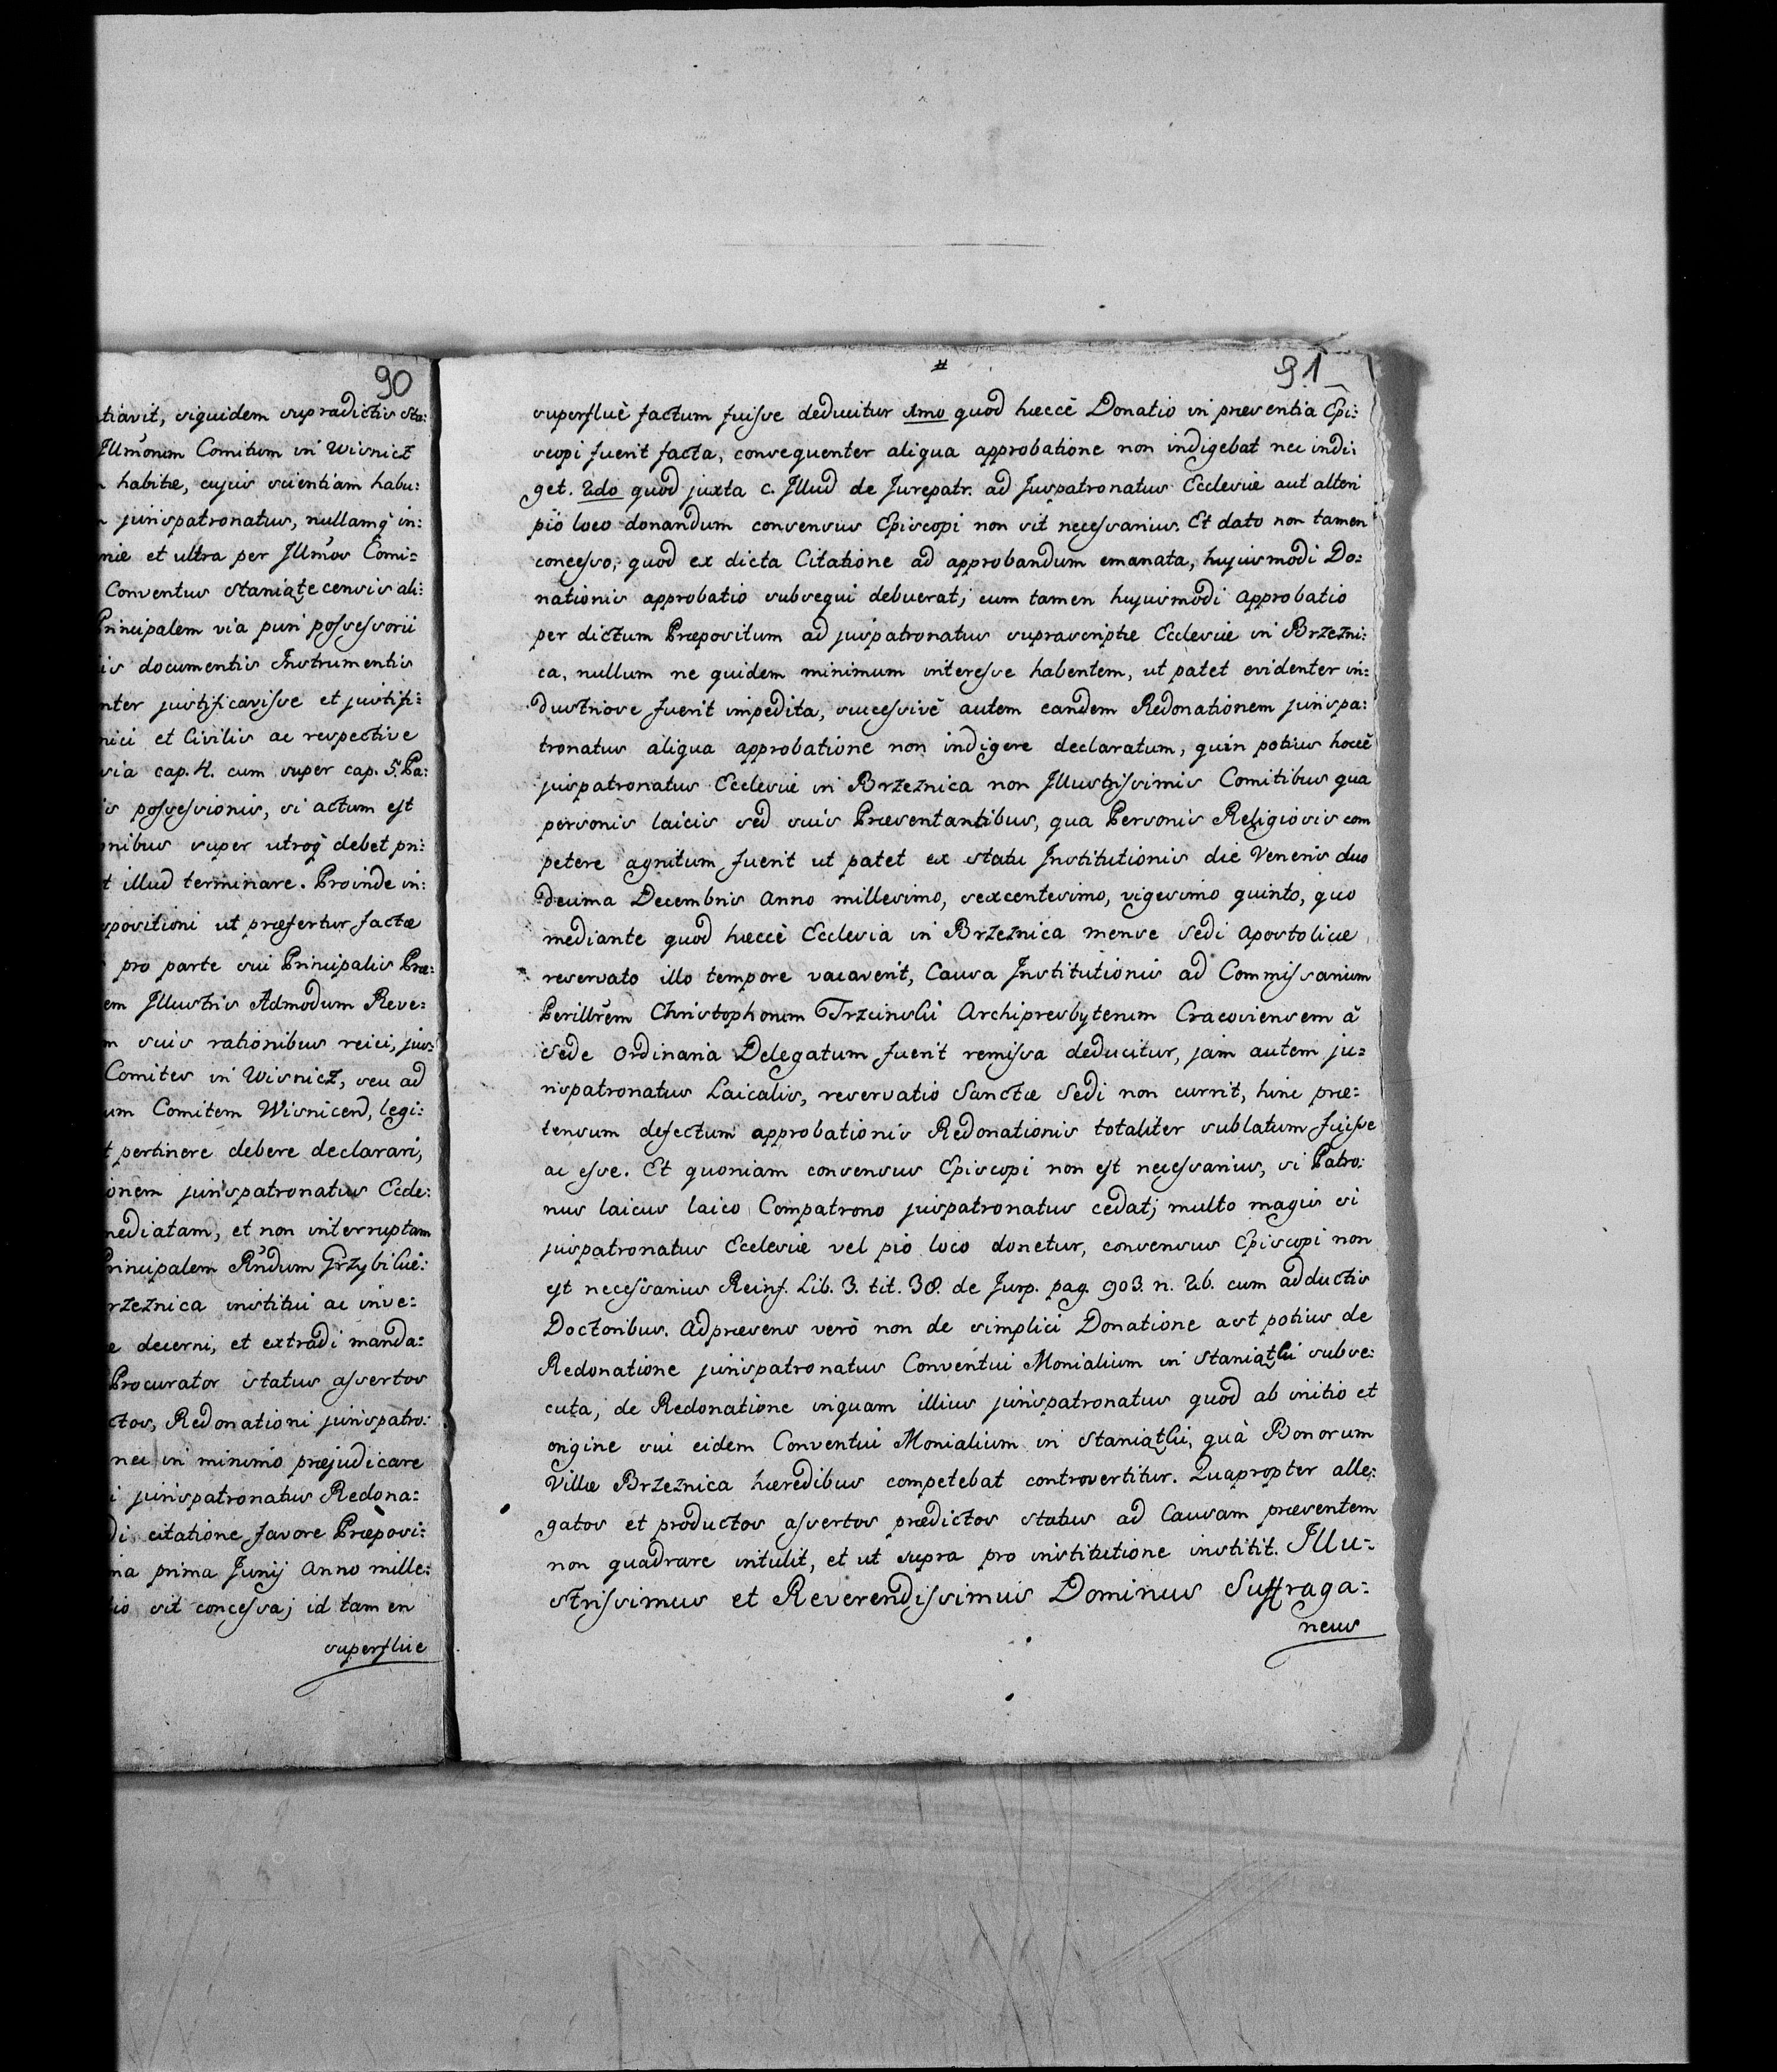 90
tiavit, siquidem supradictis Sta:
Illm̃orum Comitum in Wisnicz
habitæ, cujus scientiam habu:
jurispatronatus, nullamq̃ in:
niæ et ultra per Illm̃os Comi=
Conventus Staniątecensis ali:
Principalem via puri possessorii
is documentis Instrumentis
nter justificavisse et justifi=
nici et Civilis ac respective
sia cap. 4. cum super cap. 5. Pa:
is possessionis, si actum est
onibus super utroq̃ debet pri:
t illud terminare. Proinde in:
spositioni ut præfertur factæ
pro parte sui Principalis Præ=
em Illustris Admodum Reve=
m suis rationibus reici, jus=
Comites in Wisnicz, seu ad
um Comitem Wisnicens, legi:
t pertinere debere declarari,
ionem jurispatronatus Eccle:
mediatam, et non interruptam
Principalem Rñdum Grzybilui:
rzeznica institui ac inve=
e decerni, et extradi manda=
Procurator status assertos
ctos, Redonationi jurispatro:
nec in minimo præjudicare
i jurispatronatus Redona=
di citatione favore Præposi=
ma prima Junij Anno mille:
tio sit concessa; id tamen
superflue
91
superfluè factum fuisse deducitur 1mo quod hæccè Donatio in præsentia Epi=
scopi fuerit facta, consequenter aliqua approbatione non indigebat nec indi:
get. 2do quod juxta c. Illud de Jurepatr. ad Juspatronatus Ecclesiæ aut alteri
pio loco donandum consensus Episcopi non sit necessarius. Et dato non tamen
concesso, quod ex dicta Citatione ad approbandum emanata, hujusmodi Do=
nationis approbatio subsequi debuerat; cum tamen hujusmodi approbatio
per dictum Præpositum ad juspatronatus suprascriptæ Ecclesiæ in Brzezni:
ca, nullum ne quidem minimum interesse habentem, ut patet evidenter in=
dustriose fuerit impedita, successivè autem eandem Redonationem jurispa:
tronatus aliqua approbatione non indigere declaratum, quin potius hoccè
juspatronatus Ecclesiæ in Brzeznica non Illustrissimis Comitibus qua
personis laicis sed suis Præsentantibus, qua Personis Religiosis com
petere agnitum fuerit ut patet ex statu Institutionis die Veneris duo
decima Decembris Anno millesimo, sexcentesimo, vigesimo quinto, quo
mediante quod hæccè Ecclesia in Brzeznica mense Sedi Apostolicæ
reservato illo tempore vacaverit, Causa Institutionis ad Commissarium
Perillr̃em Christophorum Trzcinski Archipresbyterum Cracoviensem à
Sede Ordinaria Delegatum fuerit remissa deducitur, jam autem ju=
rispatronatus Laicalis, reservatio Sanctæ Sedi non currit, hinc præ=
tensum defectum approbationis Redonationis totaliter sublatum fuisse
ac esse. Et quoniam consensus Episcopi non est necessarius, si Patro:
nus laicus laico Compatrono juspatronatus cedat; multo magis si
juspatronatus Ecclesiæ vel pio loco donetur, consensus Episcopi non
est necessarius Reinf. Lib. 3. tit. 38. de Jurp. pag. 903. n. 26. cum adductis
Doctoribus. Adpræsens verò non de simplici Donatione ast potius de
Redonatione jurispatronatus Conventui Monialium in Staniątki subse:
cuta, de Redonatione inquam illius jurispatronatus quod ab initio et
origine sui eidem Conventui Monialium in Staniątki, quà Bonorum
Villæ Brzeznica hæredibus competebat controvertitur. Quapropter alle:
gatos et productos assertos prædictos status ad Causam præsentem
non quadrare intulit, et ut supra pro institutione institit. Illu=
strissimus et Reverendissimus Dominus Suffraga=
neus